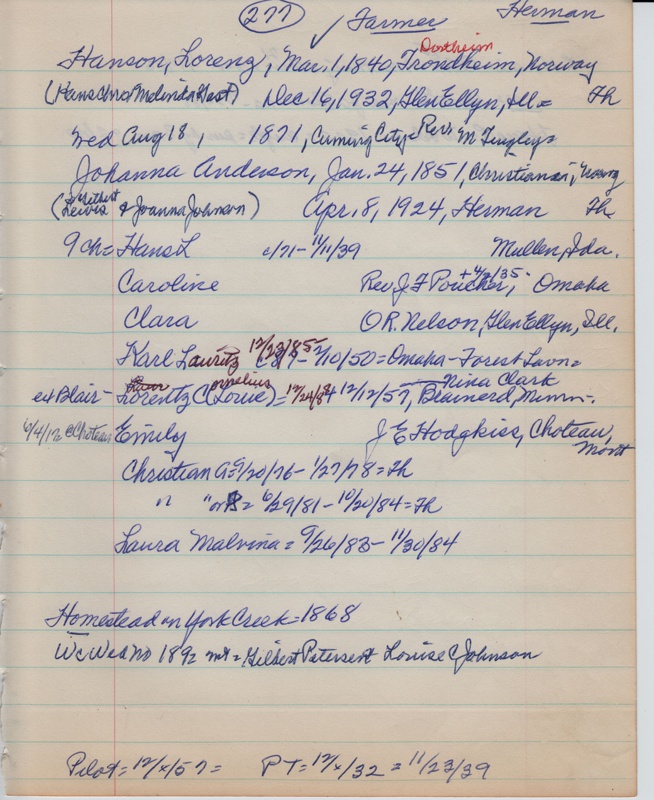 277 ✓ Farmer Herman
Dontheim
Hanson, Lorenz, Mar. 1, 1840, Trondheim, Norway
(Hans and Melinda Gast) Dec 16, 1932, Glen Ellyn, Ill = Th
wed Aug 18, 1871, Cuming City = Rev M Tingley =
Johanna Anderson, Jan. 24, 1851, Christiana, Norway
(Lewis & Joanna Johnson) Apr. 8, 1924, Herman Th
9 ch = Hans L c/71 - 11/11/39 Mullen, Ida.
Caroline Rev J F Poucher, + 4/2/35 - Omaha
Clara O R. Nelson, Glen Ellyn, Ill.
Karl Lauritz 12/23/85 - 2/10/50 = Omaha - Forest Lawn =
Nina Clark
ex Blair - Lorentz C (Lorue) = ornelius 12/24/84 12/12/57, Blainerd, Minn -
6/4/12 @ Choteau Emily J E Hodgkiss, Choteau, Mont
Christian A = 9/20/76 - 1/27/78 = Th
" " or B = 6/29/81 - 10/20/84 = Th
Laura Malvina = 9/26/83 - 11/30/84
Homestead on York Creek = 1868
Wc Wed no 1892 mr = Gilbert Petersen + Louise C Johnson
Pilot = 12/x/57 = PT = 12/x/32 = 11/23/39